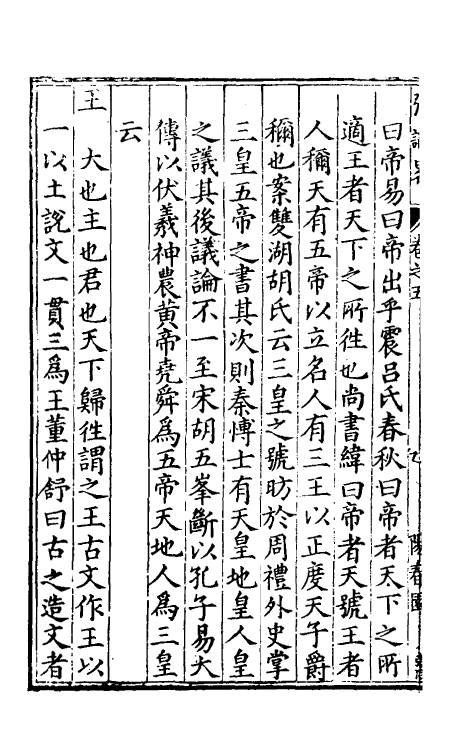 曰帝易曰帝出乎震吕氏春秋曰帝者天下之所
適王者天下之所徃也尚書緯曰帝者天號王者
人稱天有五帝以立名人有三王以正度天子爵
稱也案雙湖胡氏云三皇之號昉於周禮外史掌
三皇五帝之書其次則秦愽士有天皇地皇人皇
之議其後議論不一至宋胡五峯斷以孔子易大
傳以伏羲神農黄帝堯舜爲五帝天地人爲三皇
云
王　大也主也君也天下歸徃謂之王古文作王以
一以土說文一貫三爲王董仲舒曰古之造文者